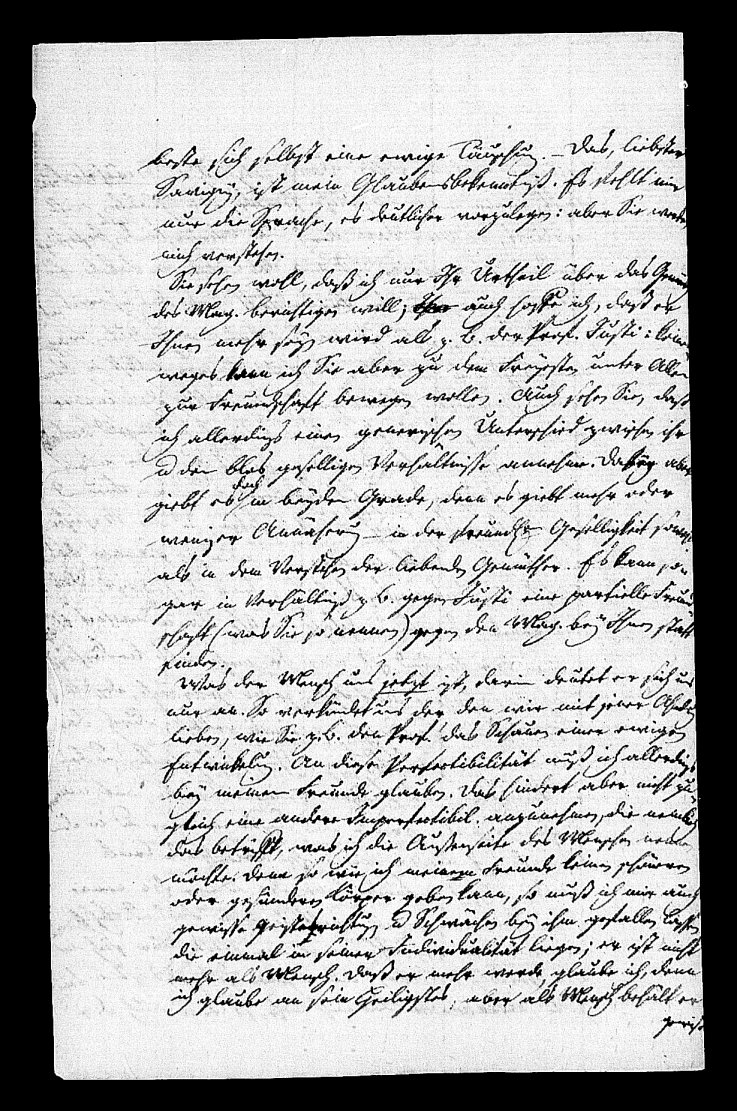 beste sich selbst eine ewige Täuschung. – Das, liebster
Savigny, ist mein Glaubensbekenntniß. Es fehlt mir
nur die Sprache, es deutlicher vorzulegen: aber Sie werden
mich verstehen.
Sie sehen woll, daß ich nur Ihr Urtheil über das
des Mag. berichtigen will; auch hoffe ich, daß er
Ihnen mehr seyn wird als z. B. der Prof. Justi: keines
weges kann ich Sie aber zu dem Freyesten unter Allen
zur Freundschaft bewegen wollen. Auch sehen Sie, daß
ich allerdings einen generischen Unterschied zwischen ihr
u den blos geselligen Verhältnisse annehme. Dabey aber
giebt es doch in beyden Grade, denn es giebt mehr oder
weniger Annäherung – in der Geselligkeit sowol
als in dem Verstehen der liebenden Gemüther. Es kann so-
gar in Verhältniß z. B. gegen Justi eine partielle Freund
schaft (was Sie so nennen) gegen den Mag. bey Ihnen statt
finden.
Was der Mensch uns jetzt ist, darin deutet er sich uns
nur an. So verkündet uns der den wir mit jener
lieben, wie Sie z. B. den Prof. das Schauen einer ewigen
Entwickelung. An diese Perfectibilität muß ich allerdings
bey meinem Freunde glauben. Das hindert aber nicht zu
gleich eine andere Imperfectibil. anzunehmen, die nemlich
das betrifft, was ich die Außenseite des Menschen nennen
möchte. Denn so wie ich meinem Freunde keinen schöneren
oder gesünderen Körper geben kann, so muß ich mir auch
gewisse u Schwächen bey ihm gefallen lassen
die einmal in seiner Individualität liegen; er ist nicht
mehr als Mensch. Daß er mehr werde, glaube ich, denn
ich glaube an sein Heiligstes; aber als Mensch behält er
gewisse